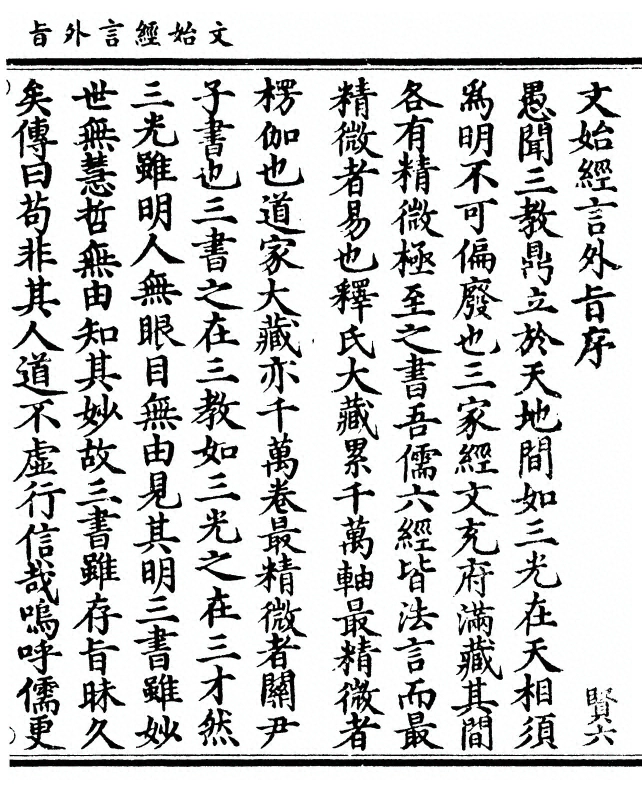 文始經言外旨
文始經言外旨序
賢六
愚聞三教鼎立於天地間如三光在天相須
爲明不可偏廢也三家經文充府滿藏其間
各有精微極至之書吾儒六經皆法言而最
精微者易也釋氏大藏累千萬軸最精微者
楞伽也道家大藏亦千萬卷最精微者關尹
子書也三書之在三教如三光之在三才然
三光雖明人無眼目無由見其明三書雖妙
世無慧哲無由知其妙故三書雖存旨昧久
矣傳曰苟非其人道不虛行信哉嗚呼儒更